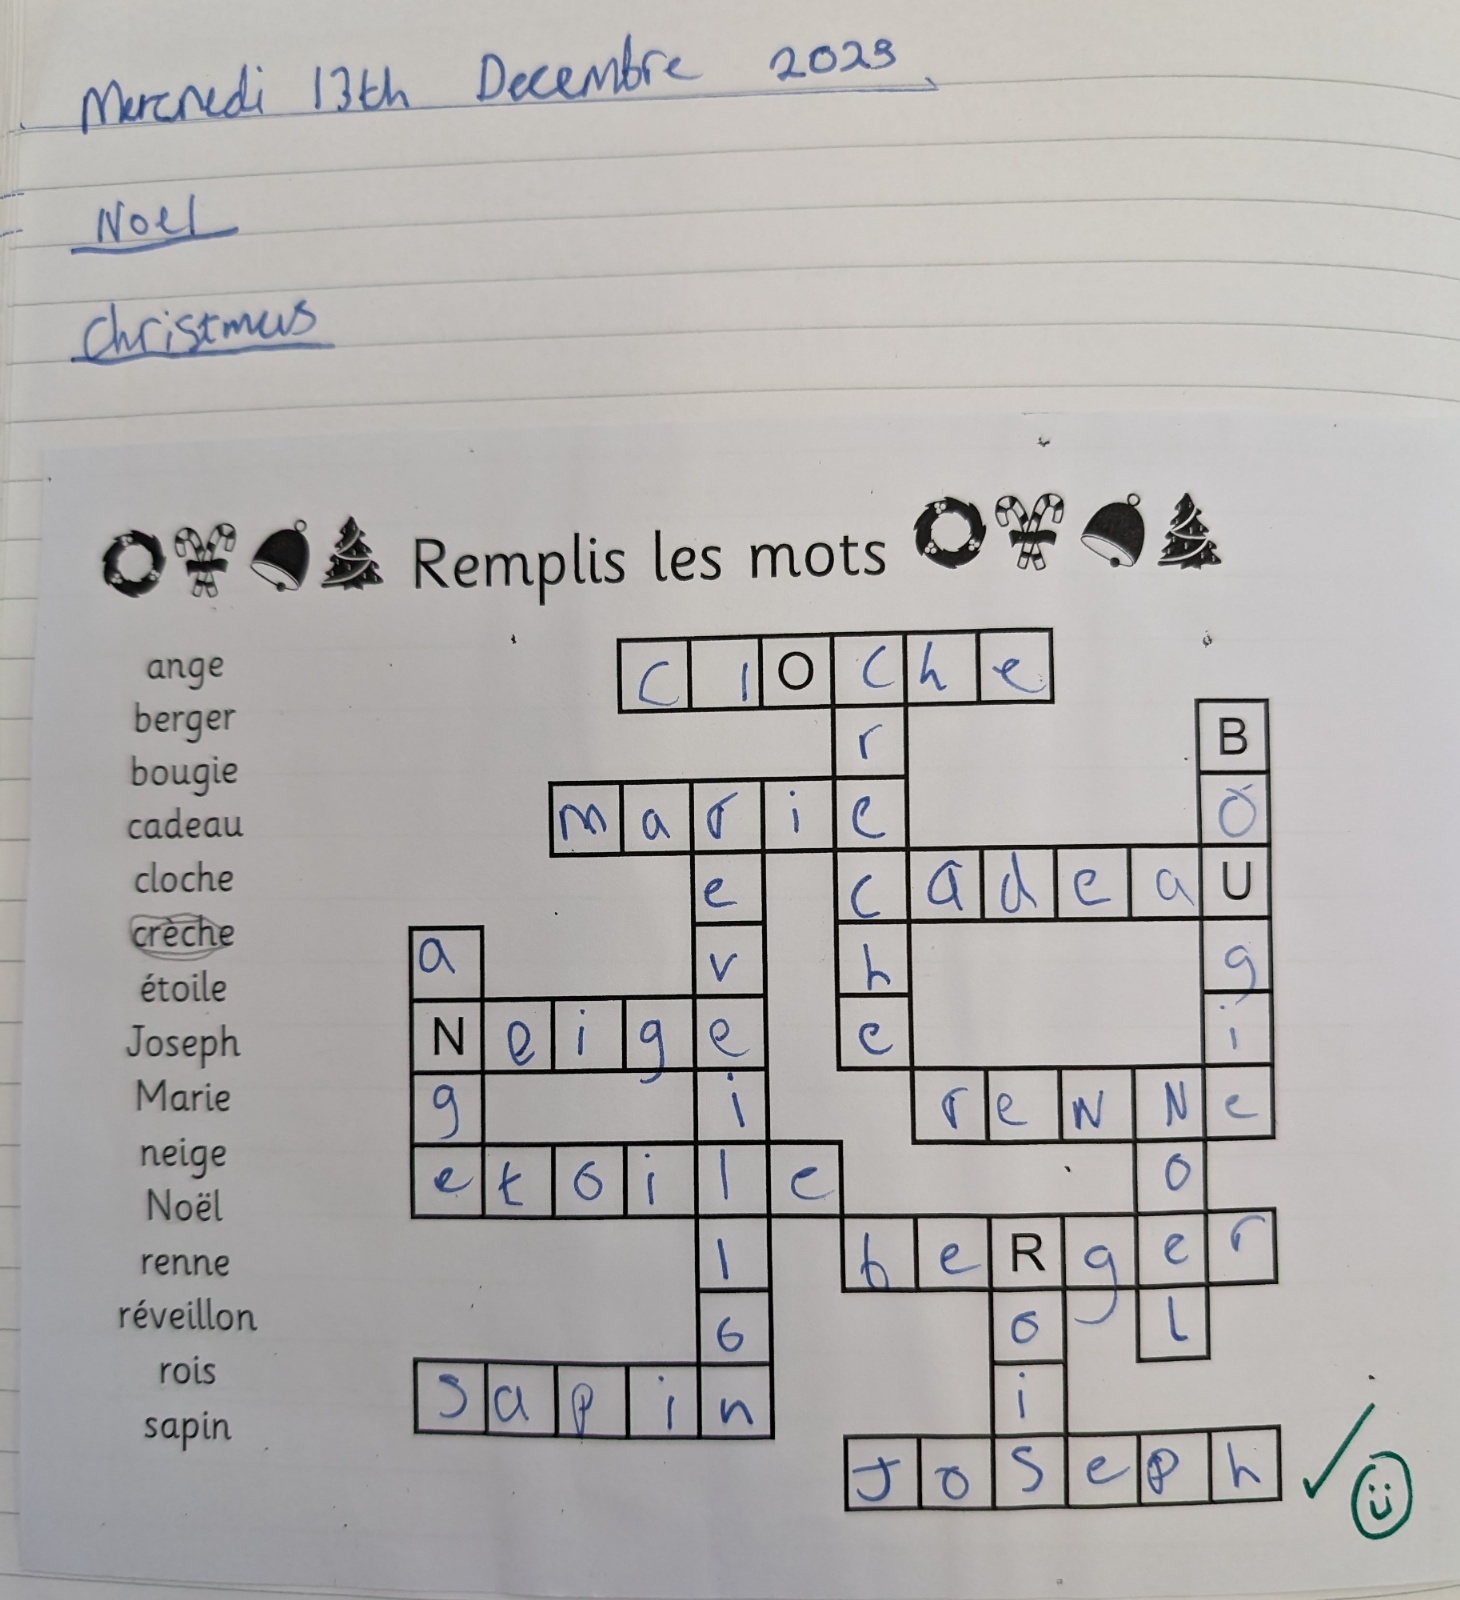 Mercredi 13th Decembre 2023
Noel
Christmas
Remplis les mots
ange
berger
bougie
cadeau
cloche
crèche
étoile
Joseph
Marie
neige
Noël
renne
réveillon
rois
sapin
c l O c h e
r
B
m a r i e
o
e
c a d e a U
a
v
h
g
N e i g e
e
i
g
i
r e N N e
e t o i l e
o
l
b e R g e r
o
o
l
s a p i n
i
J o s e p h